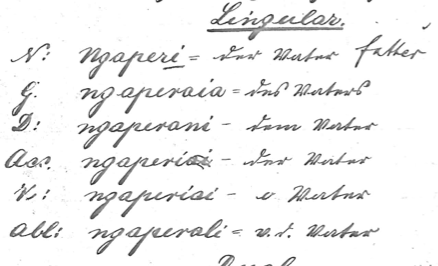 Singular.
N: Ngaperi = der Vater father
G. ngaperaia = des Vaters
D: ngaperani - dem Vater
Acc. ngaperi - der Vater
V: ngaperiai - o Vater
Abl: ngaperali = v. d. Vater